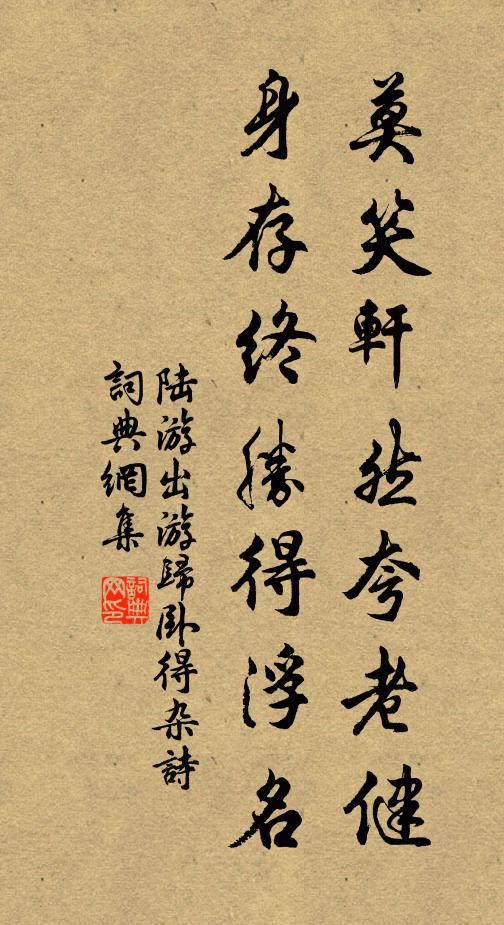 莫笑軒然夸老健
身存終勝得浮名
陸游出游歸臥得杂詩
詞典網集
詞典
网印